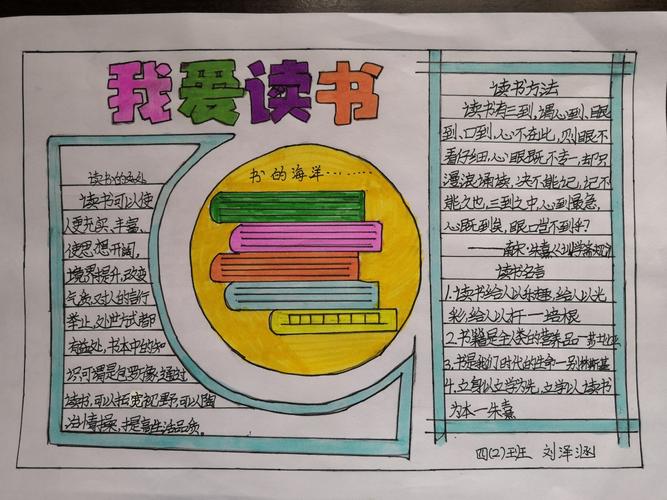 我爱读书
读书的好处
读书可以使
人更充实、丰富、
使思想开阔,
境界提升,改变
气质,对人的言行
举止,处世方式都
有益处,书本中的知
识可谓是包罗万像,通过
读书,可以拓宽视野,可以陶
冶情操,提高生活品质。
书的海洋……
读书方法
读书有三到,谓心到、眼
到、口到,心不在此,则眼不
看仔细,心眼既不专一,却只
漫浪诵读,决不能记,记不
能久也,三到之中,心到最急,
心既到矣,眼口岂不到乎?
——南宋·朱熹《训学斋规》
读书名言
1.读书给人以乐趣,给人以光
彩,给人以才干——培根
2.书籍是全人类的营养品—莎士比亚
3.书是我们时代的生命—别林斯基
4.立身以立学为先,立学以读书
为本—朱熹
四(2)班 刘泽涵